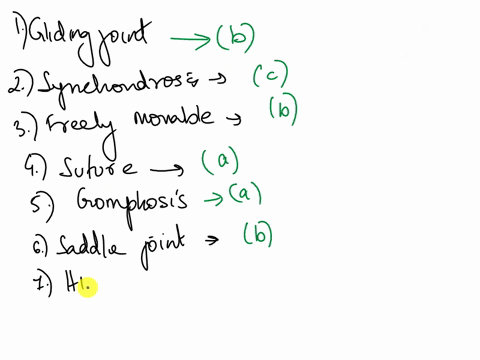 1.) Gliding joint → (b)
2.) Synchondrosis → (c)
3.) Freely movable → (b)
4.) Suture → (a)
5.) Gomphosis → (a)
6.) Saddle joint → (b)
7.) Hi